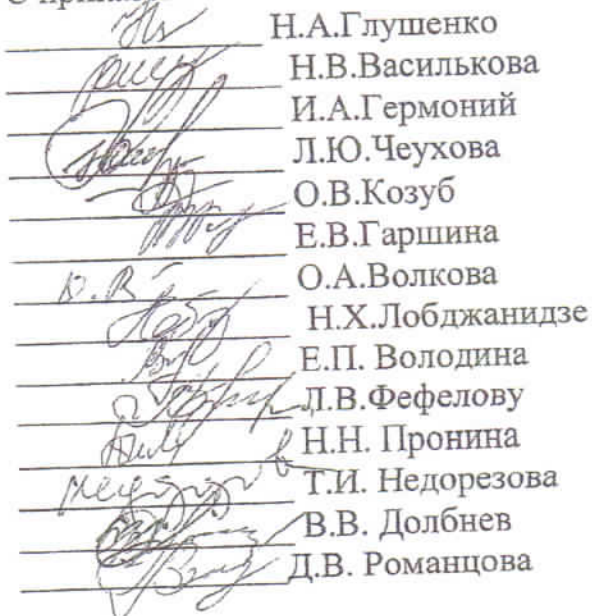 Н.А.Глушенко
Н.В.Василькова
И.А.Гермоний
Л.Ю.Чеухова
О.В.Козуб
Е.В.Гаршина
О.А.Волкова
Н.Х.Лобджанидзе
Е.П. Володина
Д.В.Фефелову
Н.Н. Пронина
Т.И. Недорезова
В.В. Долбнев
Д.В. Романцова